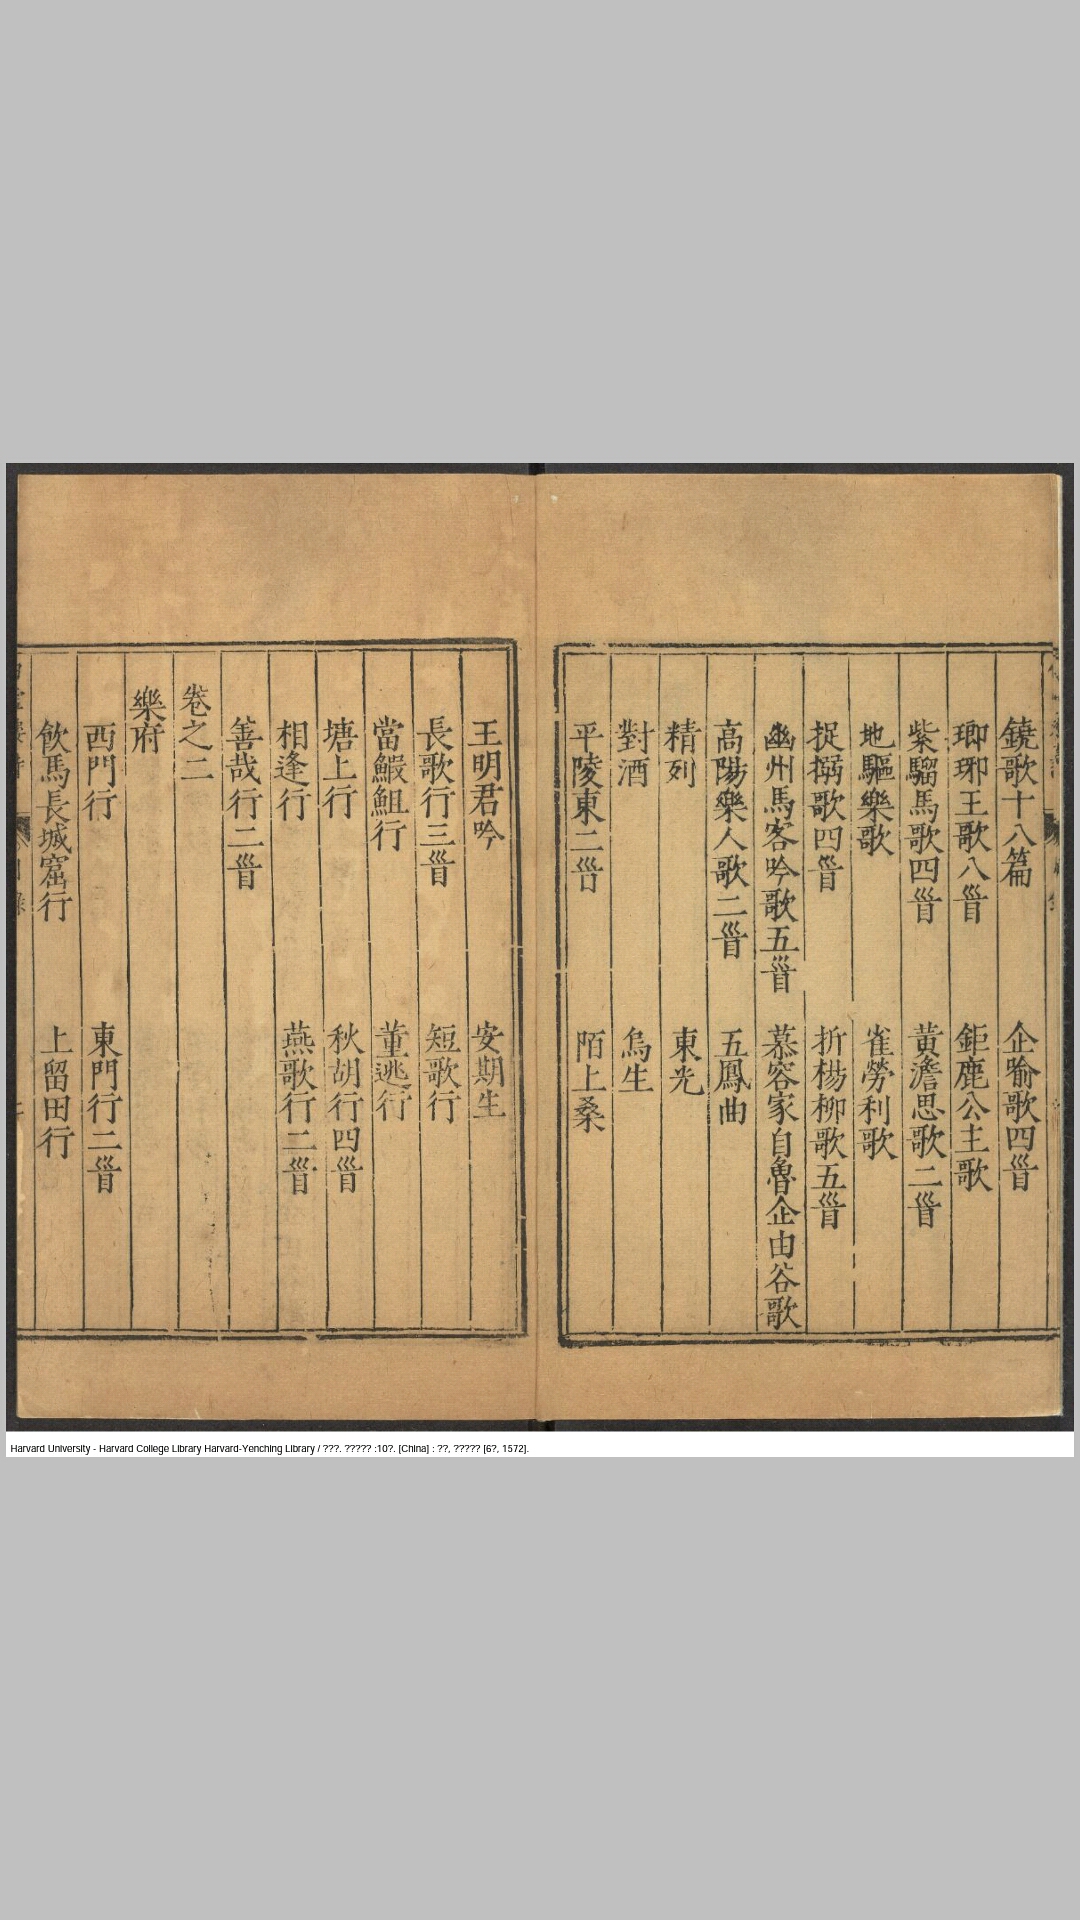 鐃歌十八篇　企喻歌四𩠐
瑯琊王歌八𩠐　鉅鹿公主歌
紫騮馬歌四𩠐　黃澹思歌二𩠐
地驅樂歌　雀勞利歌
捉搦歌四𩠐　折楊柳歌五𩠐
幽州馬客吟歌五𩠐　慕容家自魯企由谷歌
高陽樂人歌二𩠐　五鳳曲
精列　東光
對酒　烏生
平陵東二𩠐　陌上桑
王明君吟　安期生
長歌行三𩠐　短歌行
當鰕䱇行　董逃行
塘上行　秋胡行四𩠐
相逢行　燕歌行二𩠐
善哉行二𩠐
卷之二
樂府
西門行　東門行二𩠐
飲馬長城窟行　上留田行
Harvard University - Harvard College Library Harvard-Yenching Library / ???. ????? :10?. [China] : ??, ????? [6?, 1572].